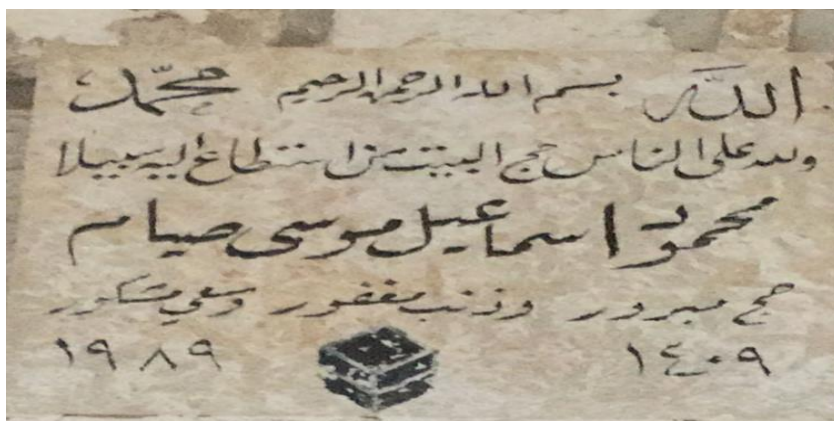 الله بسم الله الرحمن الرحيم محمد
ولله على الناس حج البيت من استطاع إليه سبيلا
محمود اسماعيل موسى صيام
حج مبرور وذنب مغفور وسعي مشكور
١٤٠٩ ١٩٨٩